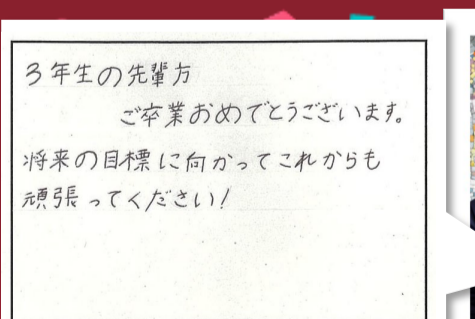 3年生の先輩方
ご卒業おめでとうございます。
将来の目標に向かってこれからも
頑張ってください!